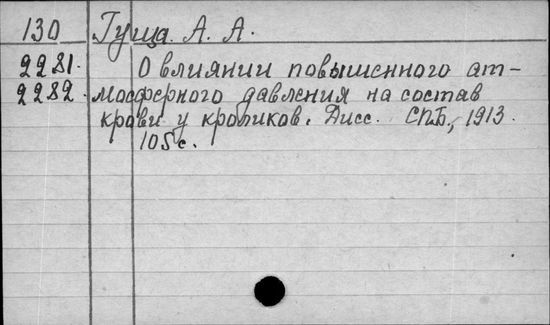 130 Гуща А. А.
2281. О влиянии повышенного ат-
2282. мосферного давления на состав
крови у кроликов. Дисс. СПБ., 1913.
105 с.